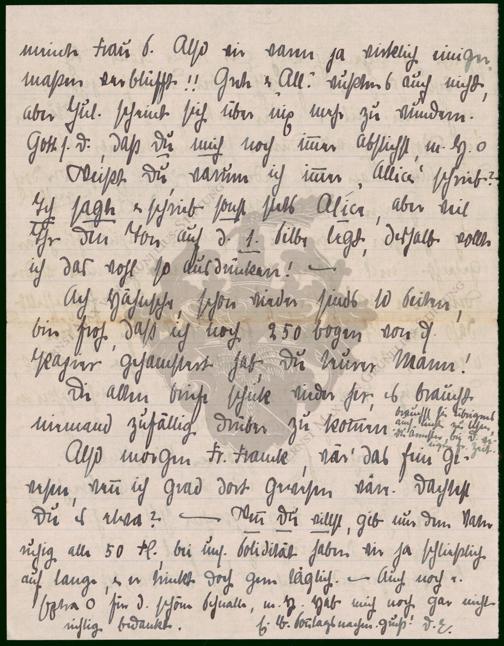 meinte Frau S. Also wir waren ja wirklich einiger-
maßen verblüfft!! Grete & All. wußtens auch nicht,
aber Jul. scheint sich über nix mehr zu wundern.
Gott s. D., daß Du mich noch immer abküßst, m. H. o
Weißt Du, warum ich immer „Allice" schrieb?
Ich sagte & schrieb sonst stets Alice, aber weil
Ihr den Ton auf d. 1. Silbe legt, deshalb wollte
ich das wohl so ausdrücken! —
Ach Hänsche, schon wieder sinds 10 Seiten,
bin froh, daß ich noch 250 bogen von d.
Papier gehamstert hab, Du teurer Mann!
Die alten briefe schick wieder her, es braucht
niemand zufällig drüber zu kommen
Also morgen Fr. Franck, wär' das fein ge-
wesen, wenn ich grad dort gewesen wäre. Dachtest
Du es etwa? — Wenn Du willst, gib nur dem Vater
ruhig alle 50 St., bei uns. Solidität haben wir ja schließlich
auf lange, & er trinkt doch gern täglich. — Auch noch e.
Extra o für d. schöne Schnalle, m. H. Hab mich noch gar nicht
richtig bedankt. Ei. lb. Sonntagnachm.gruß! D. E.